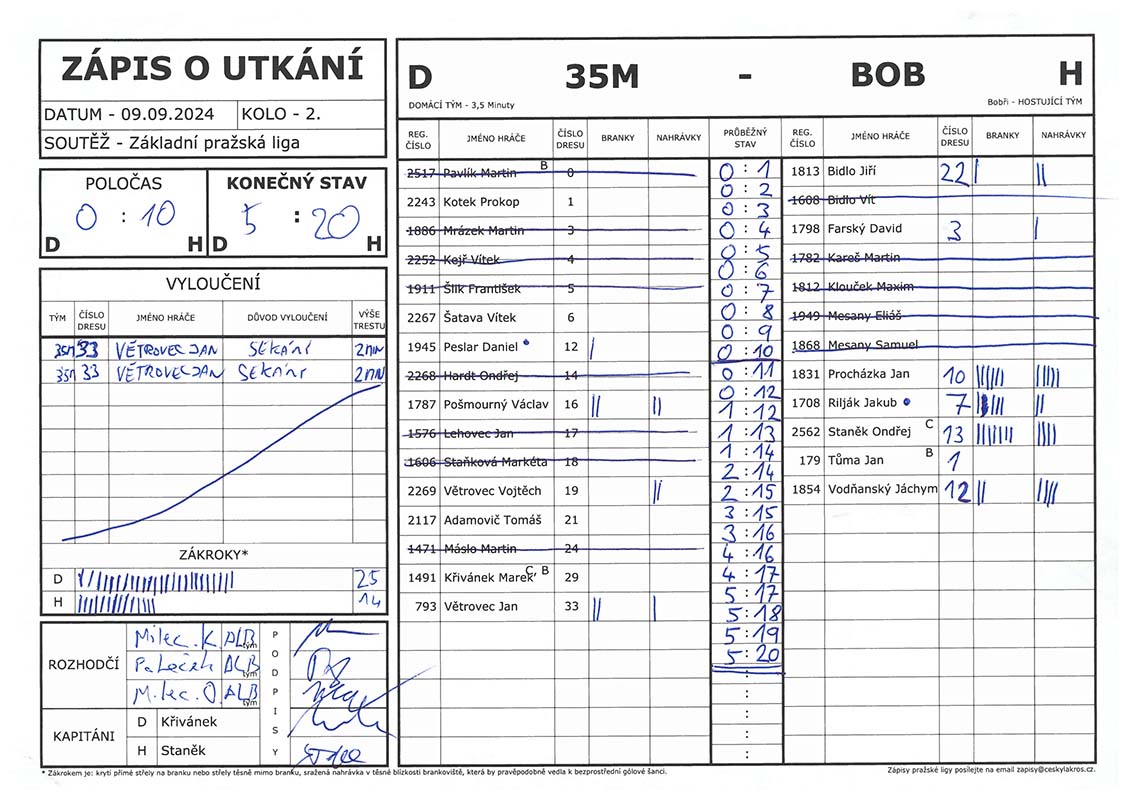 ZÁPIS O UTKÁNÍ
DATUM - 09.09.2024 KOLO - 2.
SOUTĚŽ - Základní pražská liga
POLOČAS KONEČNÝ STAV
0 : 10 5 : 20
D H D H
VYLOUČENÍ
TÝM ČÍSLO DRESU JMÉNO HRÁČE DŮVOD VYLOUČENÍ VÝŠE TRESTU
35M 33 VĚTROVEC JAN SEKÁNÍ 2 MIN
35M 33 VĚTROVEC JAN SEKÁNÍ 2 MIN
ZÁKROKY*
D 25
H 14
ROZHODČÍ
Milec. K. ALB tým
Paleček ALB tým
Milec. O. ALB tým
PODPISY
KAPITÁNI
D Křivánek
H Staněk
D 35M - BOB H
DOMÁCÍ TÝM - 3,5 Minuty Bobři - HOSTUJÍCÍ TÝM
REG. ČÍSLO JMÉNO HRÁČE ČÍSLO DRESU BRANKY NAHRÁVKY PRŮBĚŽNÝ STAV REG. ČÍSLO JMÉNO HRÁČE ČÍSLO DRESU BRANKY NAHRÁVKY
2517 Pavlík Martin B 0
2243 Kotek Prokop 1
1886 Mrázek Martin 3
2252 Kejř Vítek 4
1911 Šlik František 5
2267 Šatava Vítek 6
1945 Peslar Daniel 12 |
2268 Hardt Ondřej 14
1787 Pošmourný Václav 16 || ||
1576 Lehovec Jan 17
1606 Staňková Markéta 18
2269 Větrovec Vojtěch 19 ||
2117 Adamovič Tomáš 21
1471 Máslo Martin 24
1491 Křivánek Marek C, B 29
793 Větrovec Jan 33 || |
0 : 1
0 : 2
0 : 3
0 : 4
0 : 5
0 : 6
0 : 7
0 : 8
0 : 9
0 : 10
0 : 11
0 : 12
1 : 12
1 : 13
1 : 14
2 : 14
2 : 15
3 : 15
3 : 16
4 : 16
4 : 17
5 : 17
5 : 18
5 : 19
5 : 20
:
:
:
1813 Bidlo Jiří 22 | ||
1608 Bidlo Vít
1798 Farský David 3 |
1782 Kareš Martin
1812 Klouček Maxim
1949 Mesany Eliáš
1868 Mesany Samuel
1831 Procházka Jan 10
1708 Rilják Jakub 7 ||
2562 Staněk Ondřej C 13 ||||
179 Tůma Jan B 1
1854 Vodňanský Jáchym 12 || ||||
* Zákrokem je: krytí přímé střely na branku nebo střely těsně mimo branku, sražená nahrávka v těsné blízkosti brankoviště, která by pravěpodobně vedla k bezprostřední gólové šanci.
Zápisy pražské ligy posílejte na email zapisy@ceskylakros.cz.